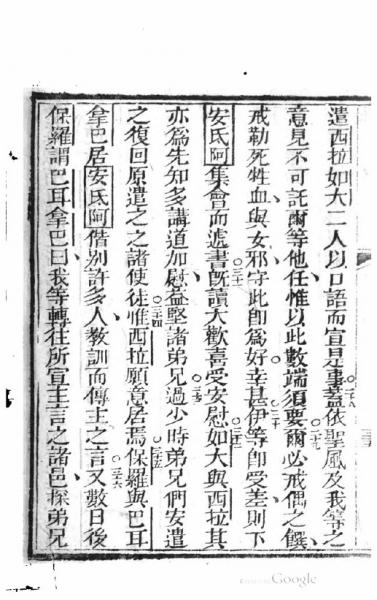 遣西拉如大二人以口語而宣是事蓋依聖風及我等之
意見不可託爾等他任惟以此數端須要爾必戒偶之饌
戒勒死牲血與女邪守此卽爲好幸甚伊等卽受差則下
安氐阿集會而遞書旣讀大歡喜受安慰如大與西拉其
亦爲先知多講道加慰益堅諸弟兄過少時弟兄們安遣
之復回原遣之之諸使徒惟西拉願意居焉保羅與巴耳
拿巴居安氐阿偕別許多人教訓而傳主之言又數日後
保羅謂巴耳拿巴曰我等轉往所宣主言之諸邑探弟兄
Google